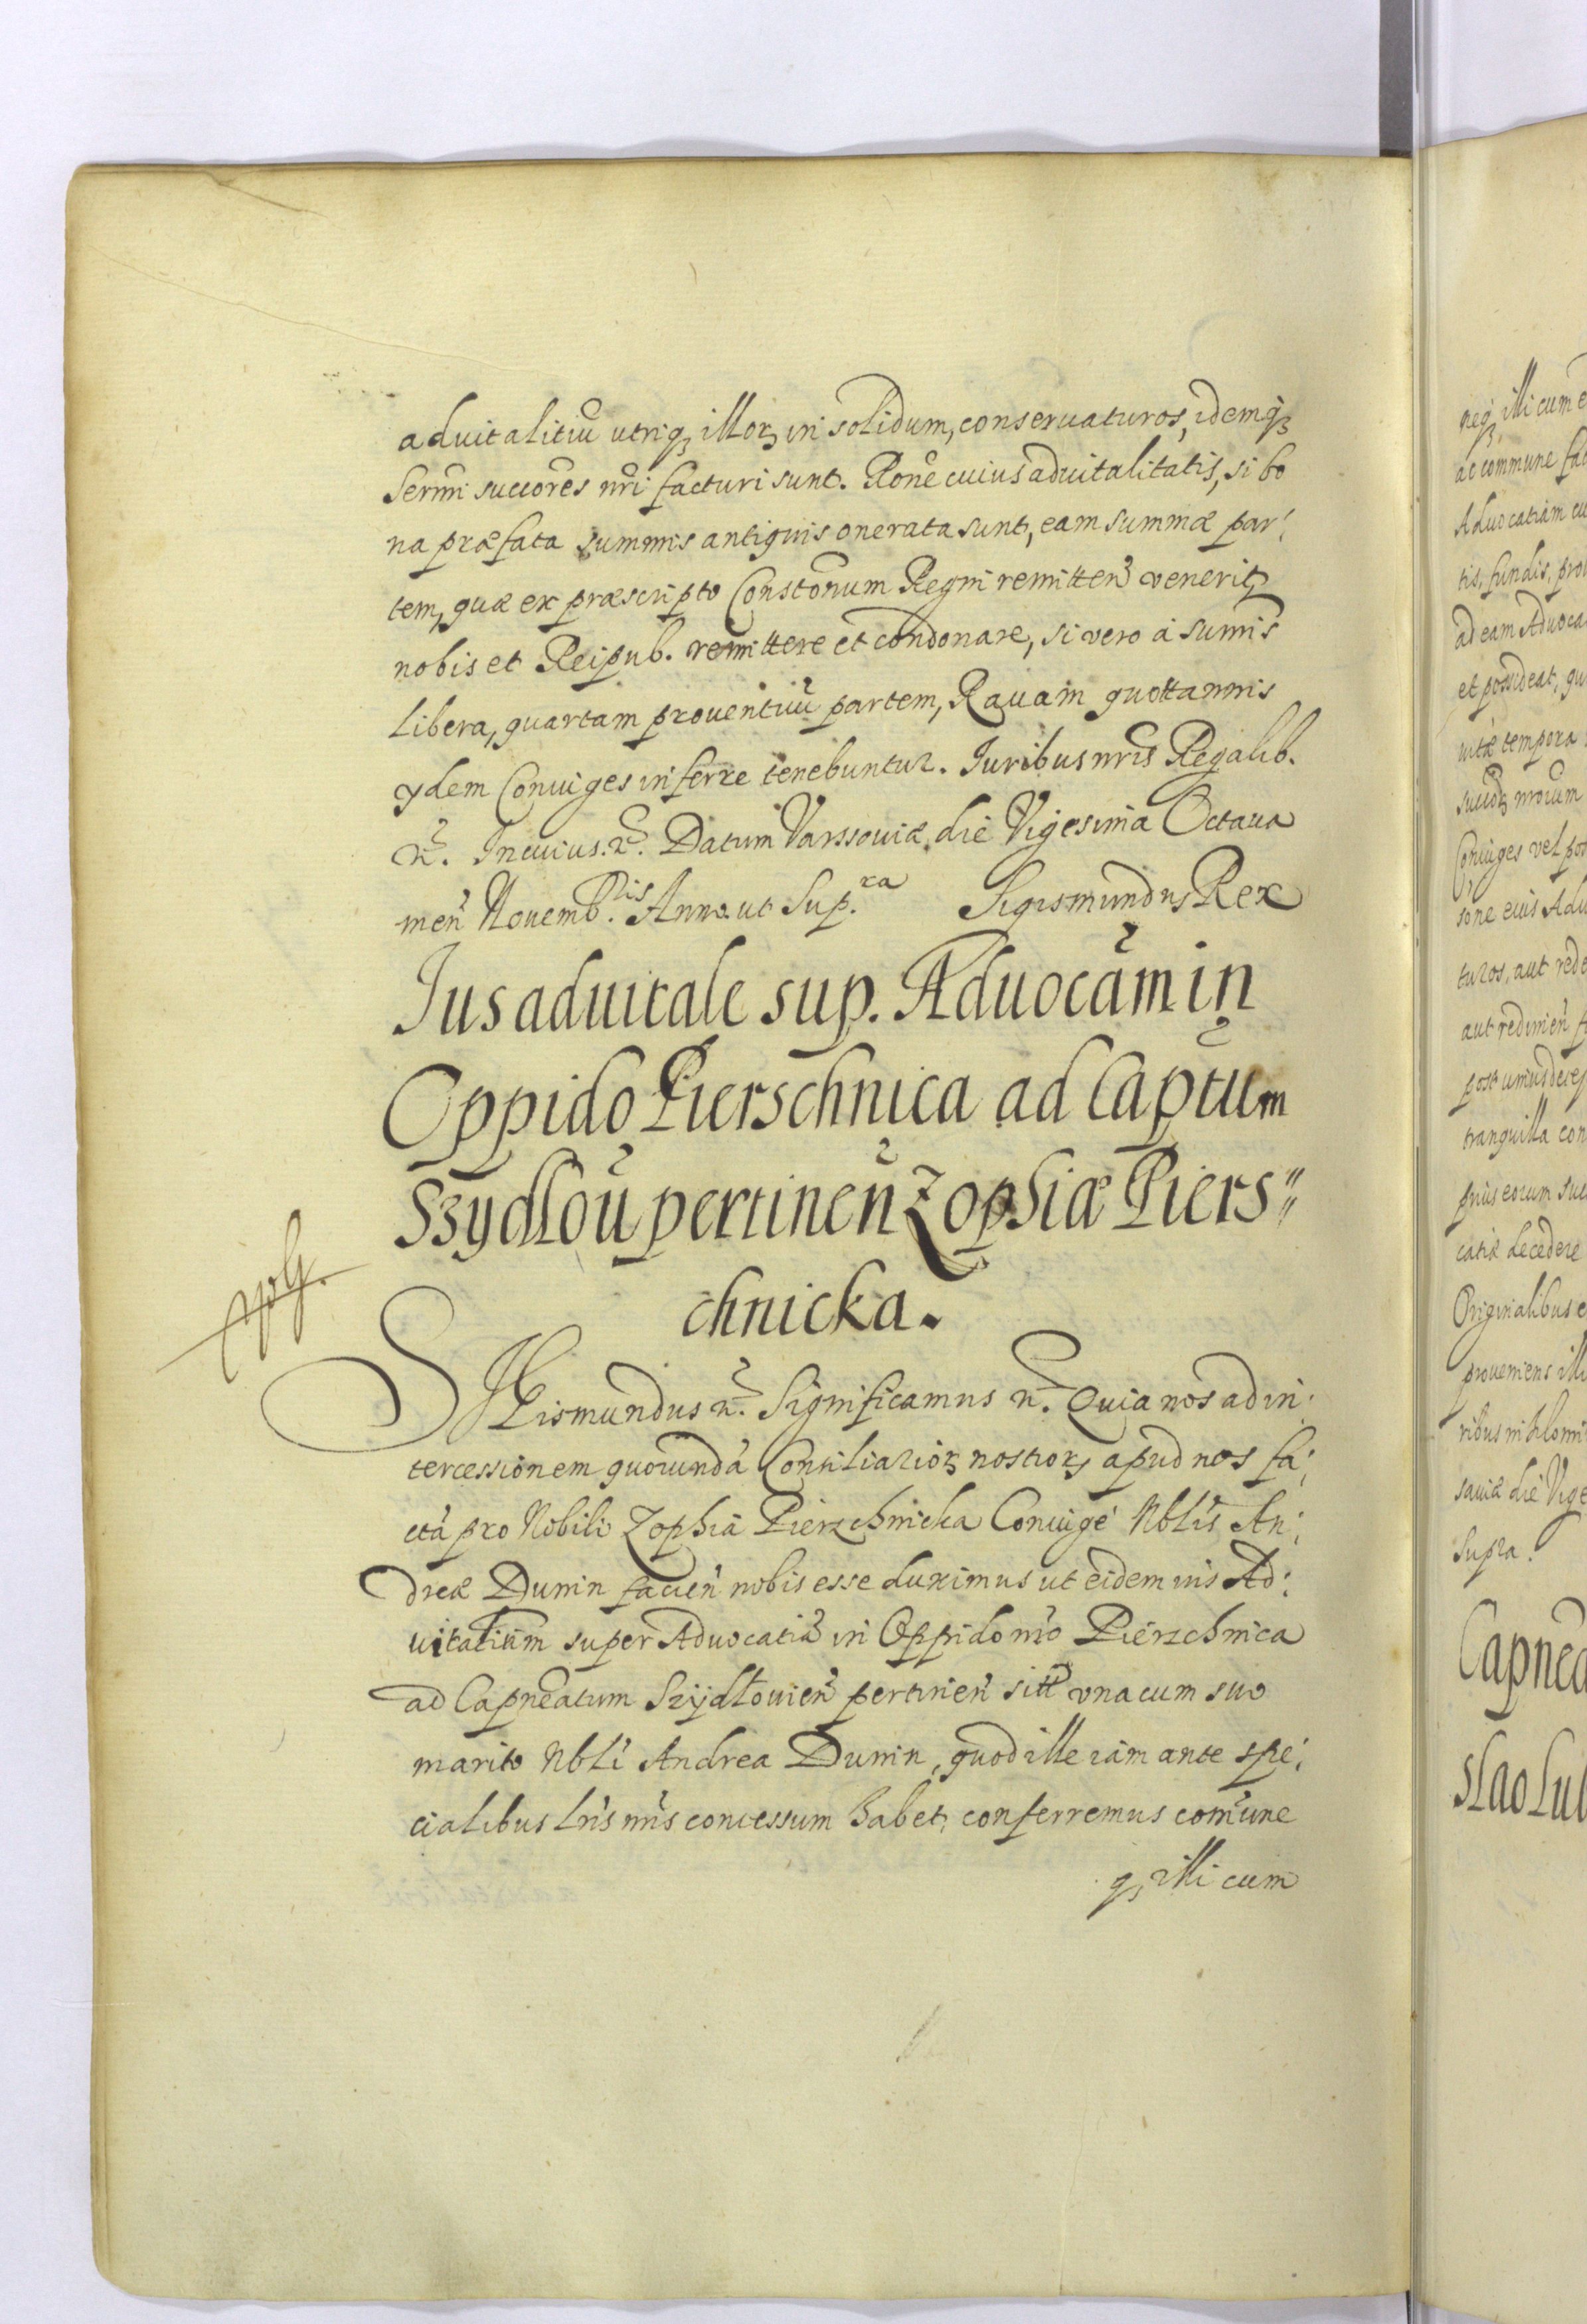 aduitalitiũ utriq₃ illoꝝ in solidum, conseruaturos, idemq₃
Sermi succores nri facturi sunt. Rone cuius aduitalitatis, si bo
na præfata summis antiquis onerata sunt, eam summæ par:
tem, quæ ex præscripto Constonum Regni remitten venerit,
nobis et Reipub. remittere et condonare, si vero à sumis
libera, quartam prouentuũ partem, Rauam quottannis
ydem Coniuges inferre tenebuntur. Iuribus nris Regalib.
etc. In cuius etc. Datum Varssouiæ, die Vigesima Octaua
men Nouemb.ris Anno ut Sup.ra Sigismundus Rex
Ius aduitale sup. Aduocãm in
Oppido Pierschnica ad Captum
Szydłou pertinen Zophiæ Piers"
chnicka.
SIGismundus etc. Significamus etc. Quia nos ad in:
tercessionem quorundã Consiliarioꝝ nostroꝝ apud nos fa:
ctã pro Nobili Zophia Pierzchnicka Coniuge Nblis An:
dreæ Dunin facien nobis esse duximus ut eidem ius Ad:
uitalium super Aduocatiã in Oppido nro Pierzchnica
ad Capneatum Szydłouien pertinen sitt vna cum suo
marito Nbli Andrea Dunin, quod ille iam ante spe:
cialibus lris nris concessum habet, conferremus comune
q₃ illi cum
neq₃ illi cum
ac commune fac
Aduocatiam cu
tis, fundis, pro
ad eam Aduoca
et possideat, qu
uitæ tempora
succoꝝ nrorum
Coniuges vel pos
sone eius Adu
turos, aut rede
aut redimen f
post unius dece
tranquilla con
prius eorum suc
catiæ decedere
Originalibus e
proueniens illi
ribus nihilomi
sauiæ die Vige
Supra.
Capnea
slao Lub